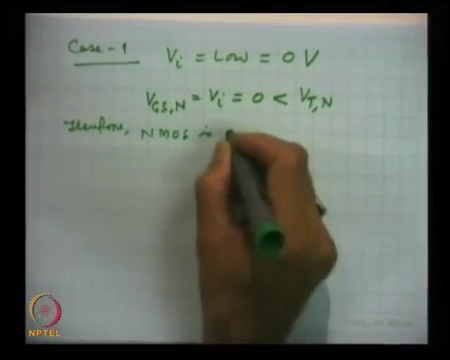 Case-1 Vi = Low = 0 V
VGS,N = Vi = 0 < VT,N
Therefore, NMOS is
NPTEL